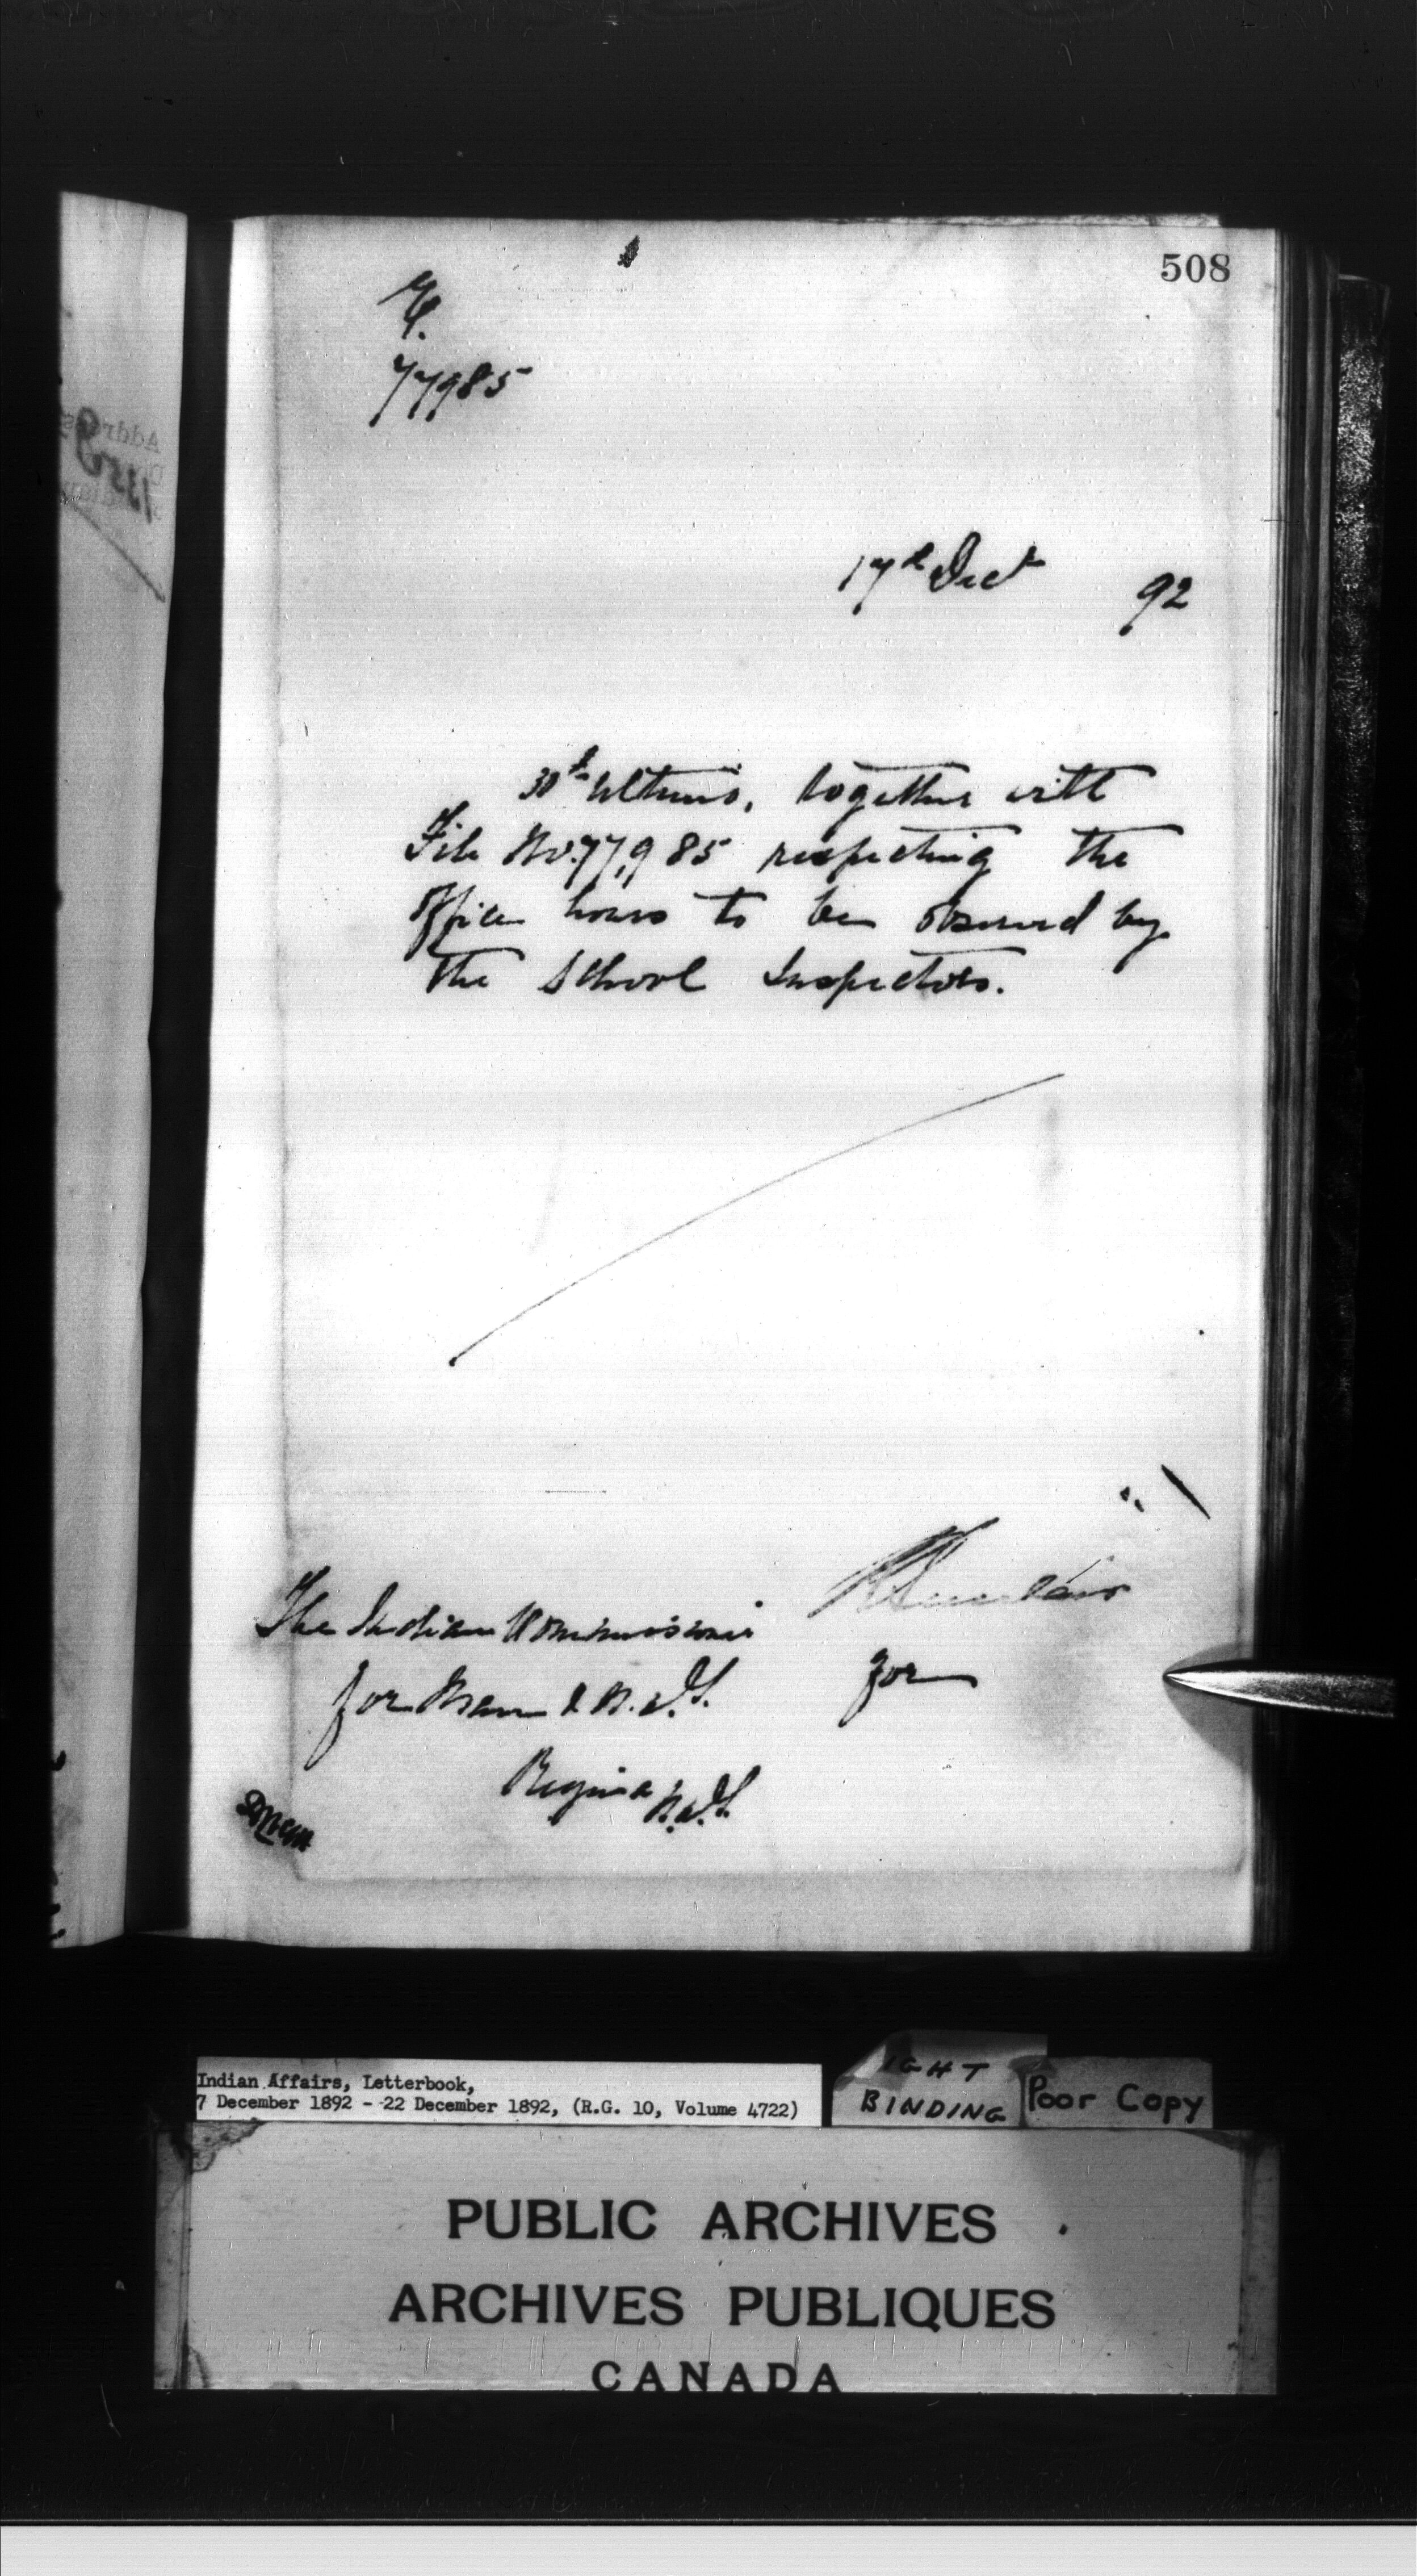 508
77985
17th Dect 92
30th Ultimo, together with
File No. 77,985 respecting the
Office hours to be observed by
the School Inspectors.
The Indian Commissioner
for Man & N.W.T.
Regina N.W.T.
for
Indian Affairs, Letterbook,
7 December 1892 - 22 December 1892, (R.G. 10, Volume 4722)
IGHT
BINDING
Poor Copy
PUBLIC ARCHIVES
ARCHIVES PUBLIQUES
CANADA